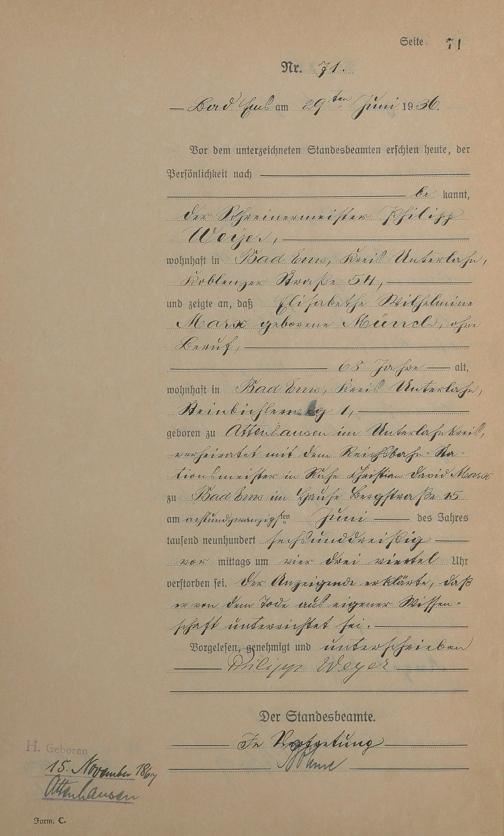 Seite 71
Nr. 71.
Bad Ems am 29ten Juni 1936.
Vor dem unterzeichneten Standesbeamten erschien heute, der
Persönlichkeit nach
be kannt,
der Schreinermeister Philipp
Weyer,
wohnhaft in Bad Ems, Kreis Unterlahn,
Koblenzer Straße 54,
und zeigte an, daß Elisabethe Wilhelmine
Marx geborene Münch, ohne
Beruf,
65 Jahre alt,
wohnhaft in Bad Ems, Kreis Unterlahn,
1,
geboren zu Attenhausen im Unterlahnkreis,
verheiratet mit dem Reichsbahn-Sta-
tionsmeister in Ruhe Christian David Marx
zu Bad Ems im Hause Bergstraße 15
am achtundzwanzigsten Juni des Jahres
tausend neunhundert sechsunddreißig
vor mittags um vier drei viertel Uhr
verstorben sei. Der Anzeigende erklärte, daß
er von dem Tode aus eigener Wissen-
schaft unterrichtet sei.
Vorgelesen, genehmigt und unterschrieben
Philipp Weyer
Der Standesbeamte.
In Vertretung
H. Geboren
15. November
Attenhausen
Form. C.